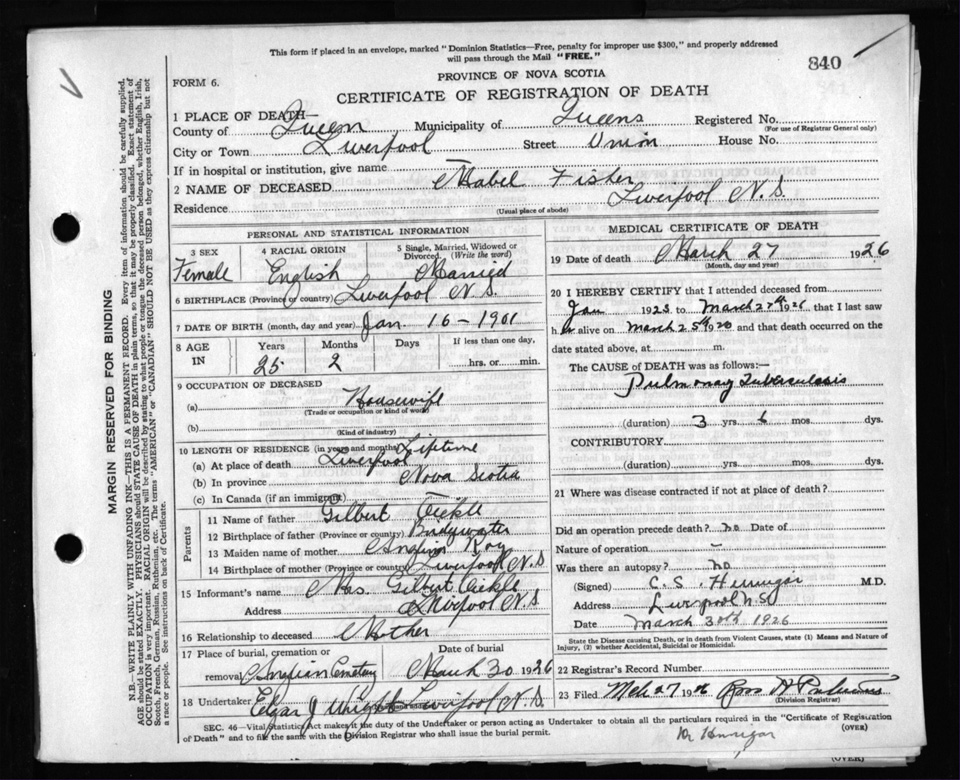 This form if placed in an envelope, marked "Dominion Statistics—Free, penalty for improper use $300," and properly addressed
will pass through the Mail "FREE."
840
PROVINCE OF NOVA SCOTIA
FORM 6.
CERTIFICATE OF REGISTRATION OF DEATH
1 PLACE OF DEATH—
County of Queen Municipality of Queens Registered No.
(For use of Registrar General only)
City or Town Liverpool Street Union House No.
If in hospital or institution, give name
2 NAME OF DECEASED Mabel Fisher
Residence Liverpool N.S.
(Usual place of abode)
PERSONAL AND STATISTICAL INFORMATION
3 SEX 4 RACIAL ORIGIN 5 Single, Married, Widowed or
Divorced. (Write the word)
Female English Married
6 BIRTHPLACE (Province or country) Liverpool N.S.
7 DATE OF BIRTH (month, day and year) Jan 16-1901
8 AGE IN Years Months Days If less than one day,
25 2 hrs. or min.
9 OCCUPATION OF DECEASED
(a) Housewife
(Trade or occupation or kind of work)
(b)
(Kind of industry)
10 LENGTH OF RESIDENCE (in years and months) Lifetime
(a) At place of death Liverpool
(b) In province Nova Scotia
(c) In Canada (if an immigrant)
Parents
11 Name of father Gilbert
12 Birthplace of father (Province or country) Bridgwater
13 Maiden name of mother
14 Birthplace of mother (Province or country) Liverpool N.S
15 Informant's name Mrs. Gilbert
Address Liverpool N.S
16 Relationship to deceased Mother
17 Place of burial, cremation or Date of burial
removal Cemetary March 30 1926
18 Undertaker Edgar J Liverpool N.S.
MEDICAL CERTIFICATE OF DEATH
19 Date of death March 27 1926
(Month, day and year)
20 I HEREBY CERTIFY that I attended deceased from
Jan 1925 to March 27th 1926 that I last saw
her alive on March 25th and that death occurred on the
date stated above, at m.
The CAUSE OF DEATH was as follows:—
Pulmonary Tuberculosis
(duration) 3 yrs. 6 mos. dys.
CONTRIBUTORY
(duration) yrs. mos. dys.
21 Where was disease contracted if not at place of death?
Did an operation precede death? no Date of
Nature of operation –
Was there an autopsy? no
(Signed) C. S. M.D.
Address Liverpool N.S
Date March 30th 1926
State the Disease causing Death, or in death from Violent Causes, state (1) Means and Nature of
Injury, (2) whether Accidental, Suicidal or Homicidal.
22 Registrar's Record Number
23 Filed Mch 27 1926 Ross
(Division Registrar)
SEC. 46—Vital Statistics Act makes it the duty of the Undertaker or person acting as Undertaker to obtain all the particulars required in the "Certificate of Registration
of Death" and to file the same with the Division Registrar who shall issue the burial permit.
(OVER)
(OVER)
MARGIN RESERVED FOR BINDING
N.B.—WRITE PLAINLY WITH UNFADING INK—THIS IS A PERMANENT RECORD. Every item of information should be carefully supplied.
AGE should be stated EXACTLY. PHYSICIANS should STATE CAUSE OF DEATH in plain terms, so that it may be properly classified. Exact statement of
OCCUPATION is very important. RACIAL ORIGIN will be described by stating to what people or tongue the deceased person belonged, whether English, Irish,
Scotch, French, German, Russian, Ruthenian, etc. The terms "AMERICAN" or "CANADIAN" SHOULD NOT BE USED as they express citizenship but not
a race or people. See instructions on back of Certificate.